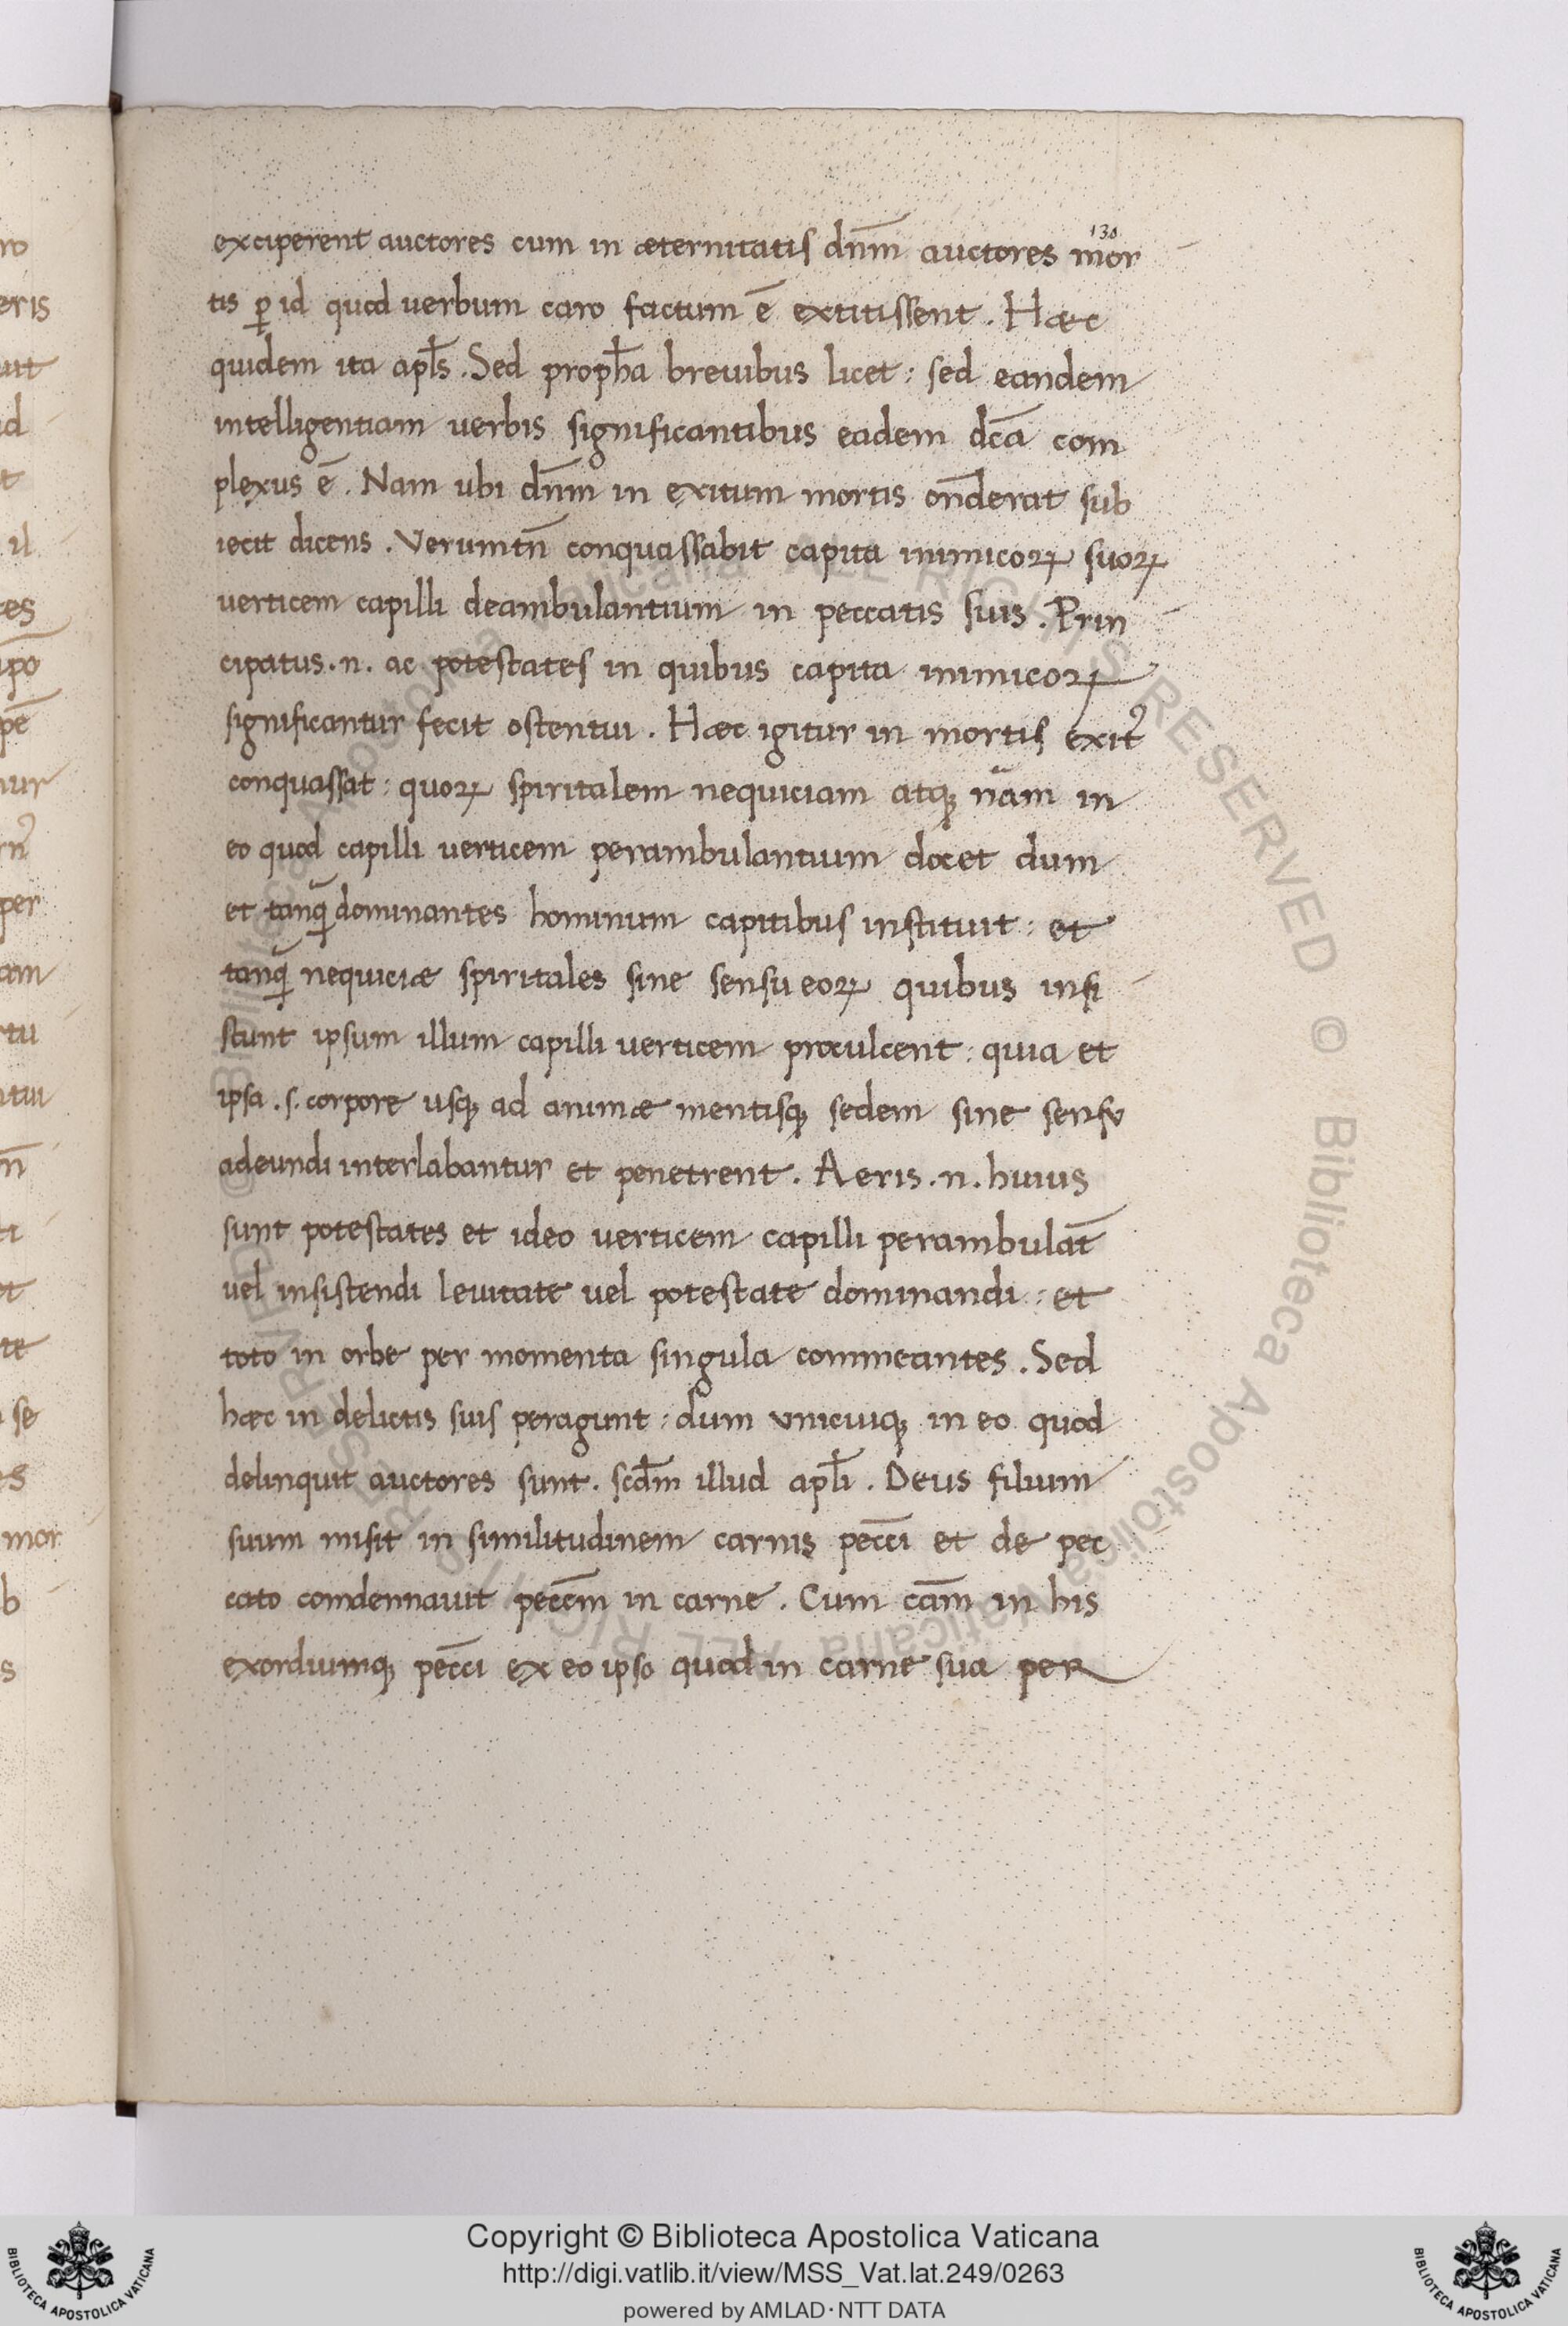 130
exciperent auctores cum in æternitatis dn̄m auctores mor
tis ꝑ id quod uerbum caro factum ē extitissent. Hæc
quidem ita apl̄s. Sed proph̄a breuibus licet: sed eandem
intelligentiam uerbis significantibus eadem dc̄a com
plexus ē. Nam ubi dn̄m in exitum mortis on̄derat sub
iecit dicens. Verumtn̄ conquassabit capita inimicoꝝ suoꝝ
uerticem capilli deambulantium in peccatis suis. Prin
cipatus .n. ac potestates in quibus capita inimicoꝝ
significantur fecit ostentui. Hæc igitur in mortis exitꝰ
conquassat: quoꝝ spiritalem nequiciam atqꝫ nām in
eo quod capilli uerticem perambulantium docet dum
et tanq̄ dominantes hominum capitibus instituit: et
tanq̄ nequiciæ spiritales sine sensu eoꝝ quibus insi
stunt ipsum illum capilli uerticem proculcent: quia et
ipsa .s. corpore usqꝫ ad animæ mentisqꝫ sedem sine sensv
adeundi interlabantur et penetrent. Aeris .n. huius
sunt potestates et ideo uerticem capilli perambulāt
uel insistendi leuitate uel potestate dominandi: et
toto in orbe per momenta singula commeantes. Sed
hæc in delictis suis peragunt: dum vnicuiqꝫ in eo quod
delinquit auctores sunt. scd̄m illud apl̄i. Deus filium
suum misit in similitudinem carnis pecc̄i et de pec
cato comdennauit pecc̄m in carne. Cum cām in his
exordiumqꝫ pecc̄i ex eo ipso quod in carne sua per
ro
eris
uit
id
t
il
ces
ipo
pē
nur
rnꝰ
per
am
rtu
ntui
n̄
ti
et
te
se
s
mor
b
s
© Biblioteca Apostolica Vaticana ALL RIGHTS RESERVED © Biblioteca Apostolica Vaticana ALL RIGHTS RESERVED
Copyright © Biblioteca Apostolica Vaticana
http://digi.vatlib.it/view/MSS_Vat.lat.249/0263
powered by AMLAD·NTT DATA
BIBLIOTECA APOSTOLICA VATICANA
BIBLIOTECA APOSTOLICA VATICANA